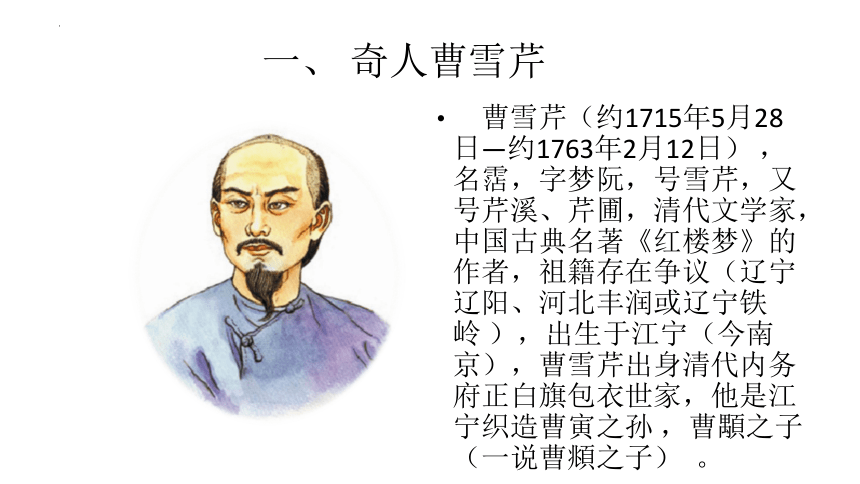 一、 奇人曹雪芹
• 曹雪芹（约1715年5月28
日—约1763年2月12日），
名霑，字梦阮，号雪芹，又
号芹溪、芹圃，清代文学家，
中国古典名著《红楼梦》的
作者，祖籍存在争议（辽宁
辽阳、河北丰润或辽宁铁
岭 ），出生于江宁（今南
京），曹雪芹出身清代内务
府正白旗包衣世家，他是江
宁织造曹寅之孙 ，曹顒之子
（一说曹頫之子） 。